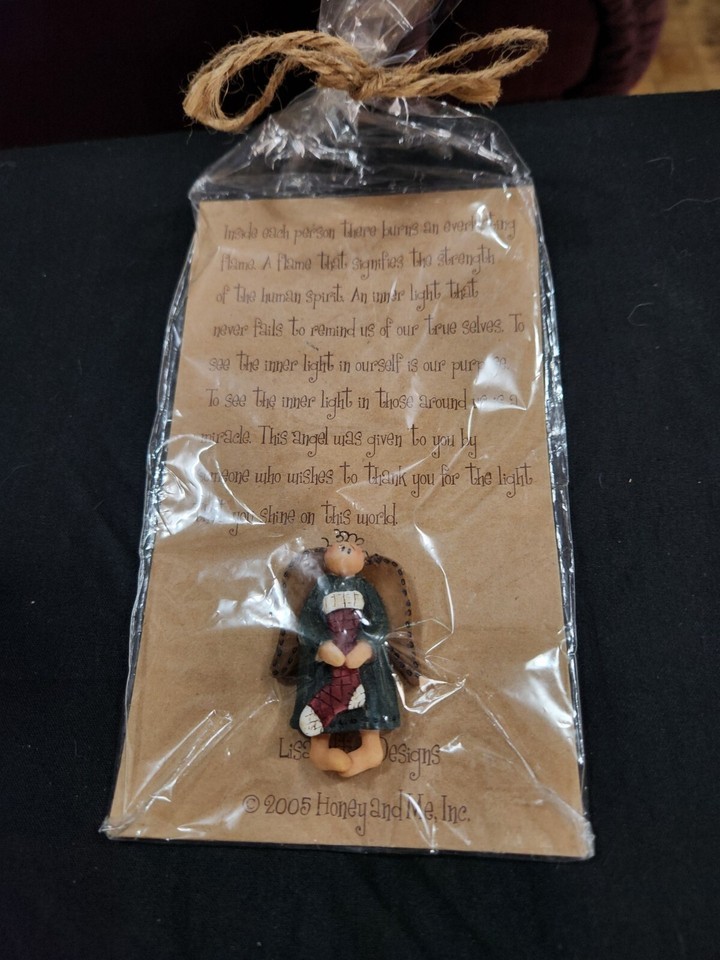 Inside each person there burns an everlasting
flame. A flame that signifies the strength
of the human spirit. An inner light that
never fails to remind us of our true selves. To
see the inner light in ourself is our purpose.
To see the inner light in those around us is a
miracle. This angel was given to you by
someone who wishes to thank you for the light
you shine on this world.
Lisa Designs
© 2005 Honey and Me, Inc.